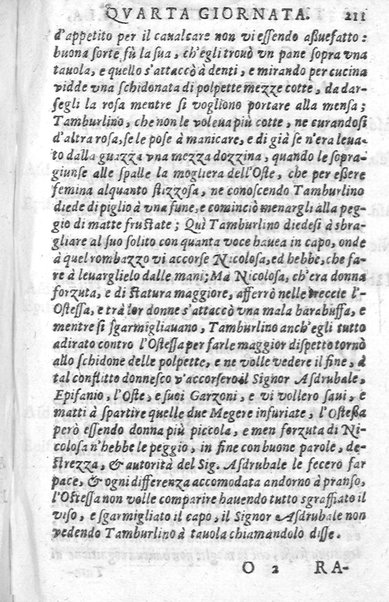 QVARTA GIORNATA. 211
d'appetito per il caualcare non vi essendo assuefatto:
buona sorte fù la sua, ch'egli trouò vn pane sopra vna
tauola, e quello s'attaccò à denti, e mirando per cucina
vidde vna schidonata di polpette mezze cotte, da dar-
segli la rosa mentre si vogliono portare alla mensa;
Tamburlino, che non le voleua più cotte, ne curandosi
d'altra rosa, se le pose à manicare, e di già se n'era leua-
to dalla guazza vna mezza dozzina, quando le sopra-
giunse alle spalle la mogliera dell'Oste, che per essere
femina alquanto stizzosa, ne conoscendo Tamburlino
diede di piglio à vna fune, e cominciò menargli alla peg-
gio di matte frustate; Quì Tamburlino diedesi à sbra-
gliare al suo solito con quanta voce hauea in capo, onde
à quel rombazzo vi accorse Nicolosa, ed hebbe, che fa-
re à leuarglielo dalle mani; Ma Nicolosa, ch'era donna
forzuta, e di statura maggiore, afferrò nelle treccie l'-
Ostessa, e trà lor donne s'attaccò vna mala barabuffa, e
mentre si sgarmigliauano, Tamburlino anch'egli tutto
adirato contro l'Ostessa per farle maggior dispetto tornò
allo schidone delle polpette, e ne volle vedere il fine, à
tal conflitto donnesco v'accorsero il Signor Asdrubale,
Epifanio, l'Oste, e suoi Garzoni, e vi vollero saui, e
matti à spartire quelle due Megere infuriate, l'Ostessa
però essendo donna più piccola, e men forzuta di Ni-
colosa n'hebbe le peggio, in fine con buone parole, de-
strezza, & autorità del Sig. Asdrubale le fecero far
pace, & ogni differenza accomodata andorno à pranso,
l'Ostessa non volle comparire hauendo tutto sgraffiato il
viso, e sgarmigliato il capo, il Signor Asdrubale non
vedendo Tamburlino à tauola chiamandolo disse.
O 2 RA-